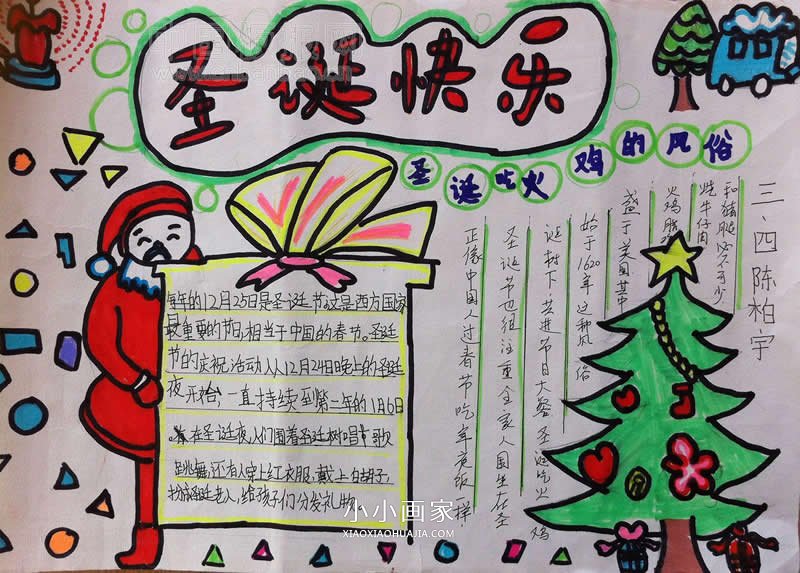 圣诞快乐
圣诞吃火鸡的风俗
三、四陈柏宇
每年的12月25日是圣诞节。这是西方国家
最重要的节日,相当于中国的春节。圣诞
节的庆祝活动从12月24日晚上的圣诞
夜开始,一直持续到第二年的1月6日
。在圣诞夜,人们围着圣诞树唱歌
跳舞,还有人穿上红衣服,戴上白胡子,
扮演圣诞老人,给孩子们分发礼物。
正像中国人过春节吃年夜饭一样
圣诞节也很注重全家人围坐在圣
诞树下 共进节日大餐 圣诞吃火鸡
始于1620年 这种风俗
盛于美国其中
火鸡
烧牛仔肉
和猪腿必不可少
小小画家
XIAOXIAOHUAJIA.COM